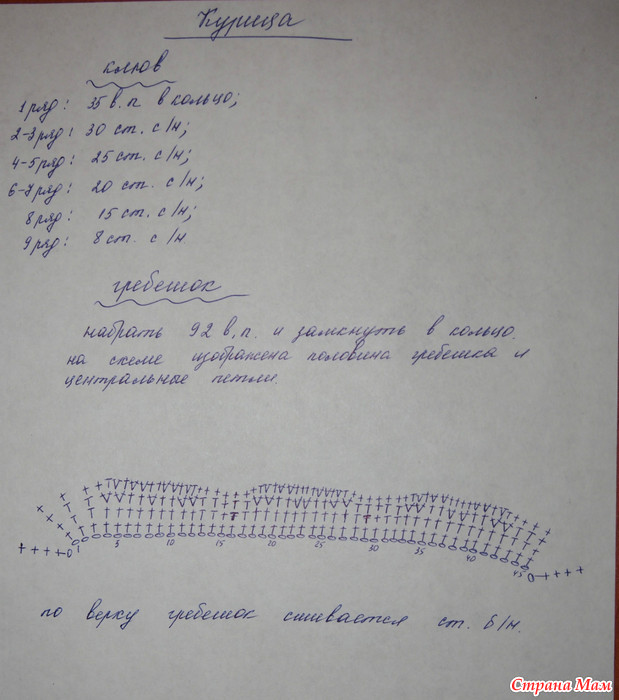 Курица
клюв
1 ряд: 35 в.п. в кольцо;
2-3 ряд: 30 ст. с/н;
4-5 ряд: 25 ст. с/н;
6-7 ряд: 20 ст. с/н;
8 ряд: 15 ст. с/н;
9 ряд: 8 ст. с/н.
гребешок
набрать 92 в.п. и замкнуть в кольцо.
на схеме изображена половина гребешка и
центральные петли.
1 5 10 15 20 25 30 35 40 45
по верху гребешок сшивается ст. б/н.
Страна Мам